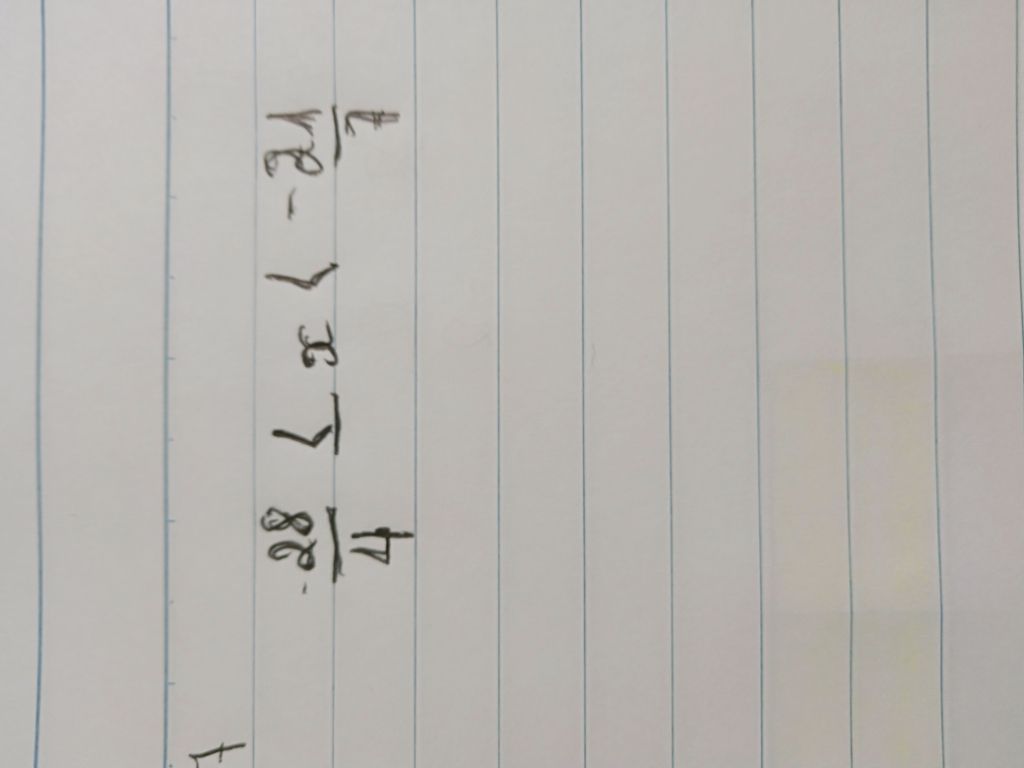 -28/4 ≤ x < -21/7